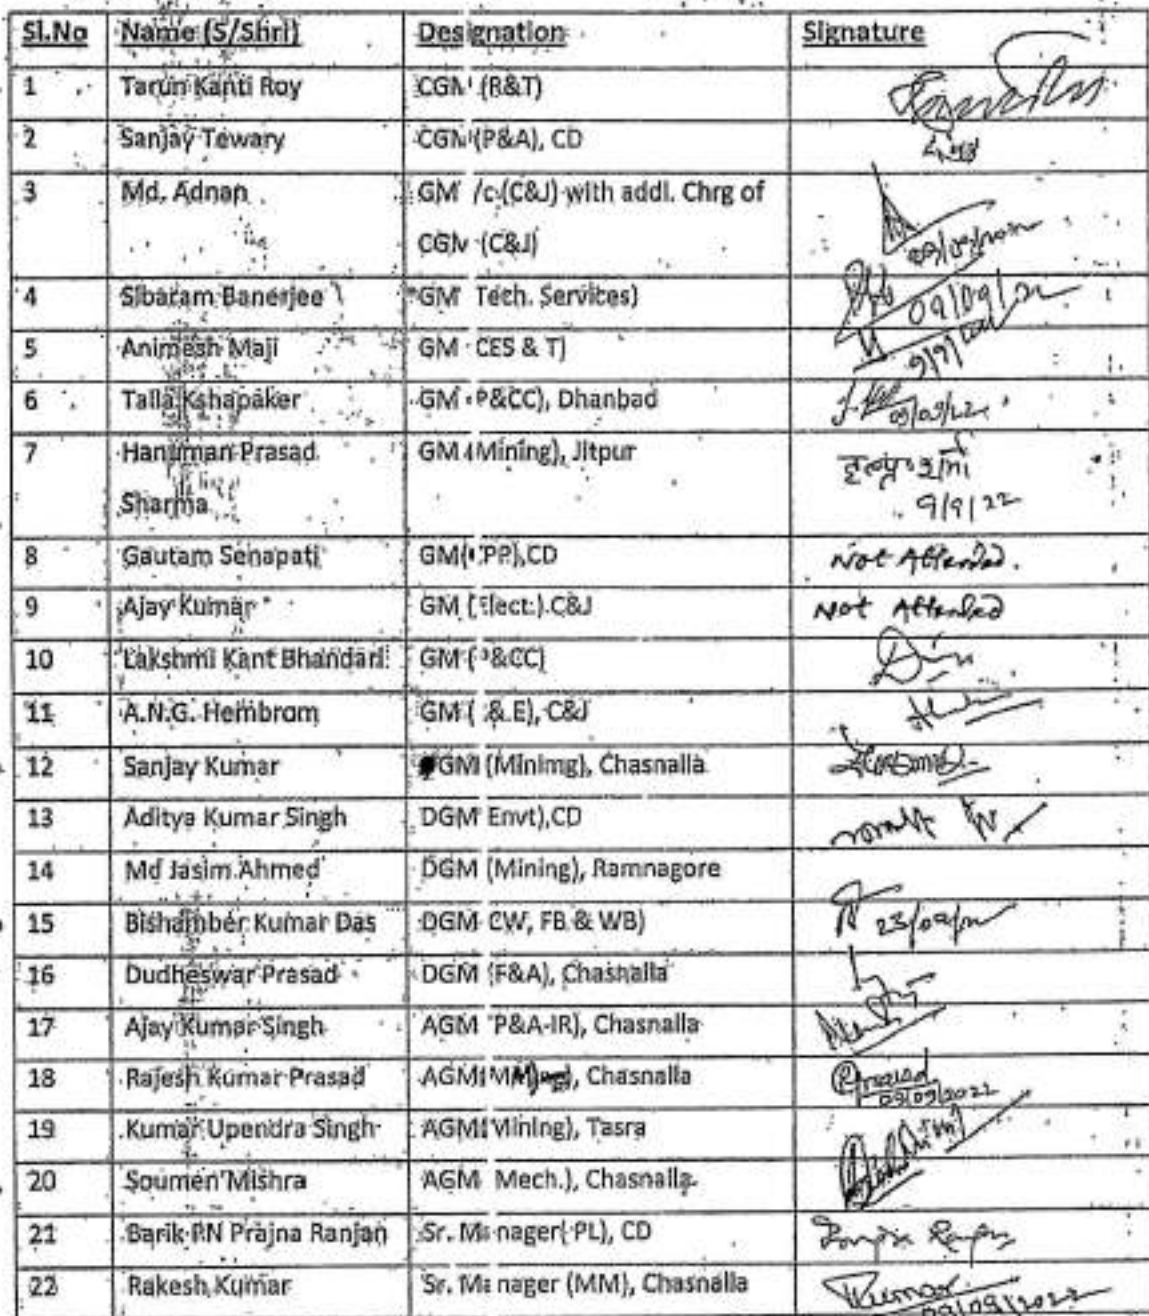 Sl.No Name (S/Shri) Designation Signature
1 Tarun Kanti Roy CGM (R&T)
2 Sanjay Tewary CGM (P&A), CD
3 Md. Adnan GM /c (C&J) with addl. Chrg of
CGM (C&J) 09/09/2022
4 Sibaram Banerjee GM Tech. Services) 09/09/22
5 Animesh Maji GM CES & T) 9/9/
6 Talla Kshapaker GM P&CC), Dhanbad 09/09/22
7 Hanuman Prasad GM (Mining), Jitpur
Sharma 9/9/22
8 Gautam Senapati GM( PP),CD Not Attended.
9 Ajay Kumar GM (Elect.) C&J Not Attended
10 Lakshmi Kant Bhandari GM ( &CC)
11 A.N.G. Hembrom GM ( & E), C&J
12 Sanjay Kumar GM (Minimg), Chasnalla
13 Aditya Kumar Singh DGM Envt),CD
14 Md Jasim Ahmed DGM (Mining), Ramnagore
15 Bishamber Kumar Das DGM CW, FB & WB) 23/09/22
16 Dudheswar Prasad DGM (F&A), Chasnalla
17 Ajay Kumar Singh AGM P&A-IR), Chasnalla
18 Rajesh Kumar Prasad AGM(MM), Chasnalla RPrasad
09/09/2022
19 Kumar Upendra Singh AGM Mining), Tasra
20 Soumen Mishra AGM Mech.), Chasnalla
21 Barik PN Prajna Ranjan Sr. Manager( PL), CD
22 Rakesh Kumar Sr. Manager (MM), Chasnalla RKumar
09/09/2022